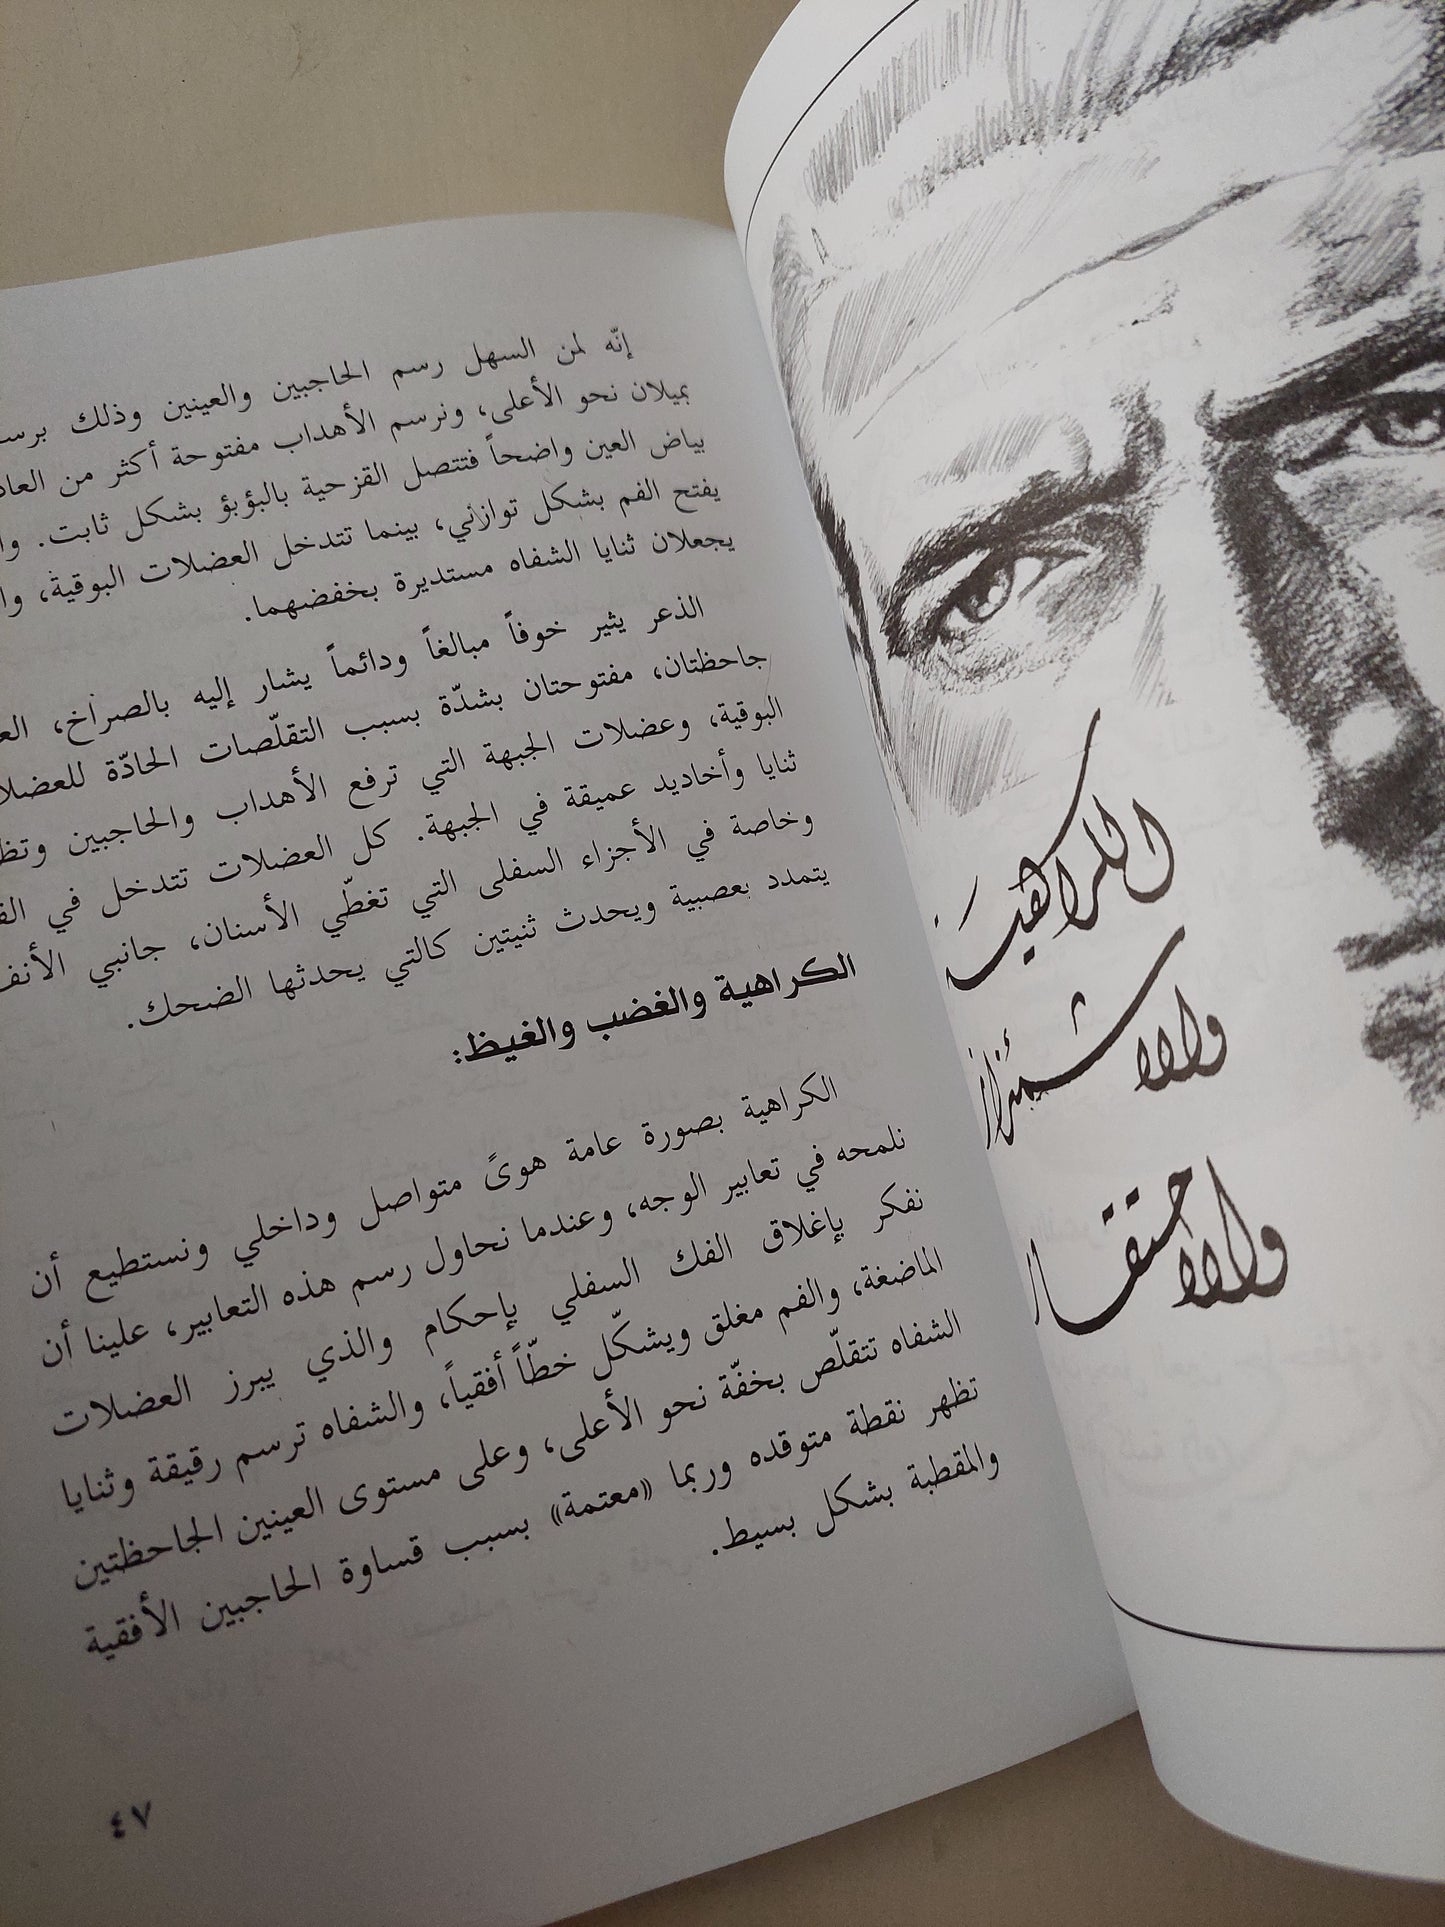 إنّه لمن السهل رسم الحاجبين والعينين وذلك
بميلان نحو الأعلى، ونرسم الأهداب مفتوحة أكثر من
بياض العين واضحاً فتتصل القزحية بالبؤبؤ بشكل ثابت.
يفتح الفم بشكل توازني، بينما تتدخل العضلات البوقية،
يجعلان ثنايا الشفاه مستديرة بخفضهما.
الذعر يثير خوفاً مبالغاً ودائماً يشار إليه بالصراخ،
جاحظتان، مفتوحتان بشدّة بسبب التقلّصات الحادّة
البوقية، وعضلات الجبهة التي ترفع الأهداب والحاجبين
ثنايا وأخاديد عميقة في الجبهة. كل العضلات تتدخل في
وخاصة في الأجزاء السفلى التي تغطّي الأسنان، جانبي
يتمدد بعصبية ويحدث ثنيتين كالتي يحدثها الضحك.
الكراهية والغضب والغيظ:
الكراهية بصورة عامة هوىً متواصل وداخلي ونستطيع أن
نلمحه في تعابير الوجه، وعندما نحاول رسم هذه التعابير، علينا أن
نفكر بإغلاق الفك السفلي بإحكام والذي يبرز العضلات
الماضغة، والفم مغلق ويشكّل خطّاً أفقياً، والشفاه ترسم رقيقة وثنايا
الشفاه تتقلّص بخفّة نحو الأعلى، وعلى مستوى العينين الجاحظتين
تظهر نقطة متوقده وربما «معتمة» بسبب قساوة الحاجبين الأفقية
والمقطبة بشكل بسيط.
٤٧
الكراهية
والاشمئزاز
والاحتقار